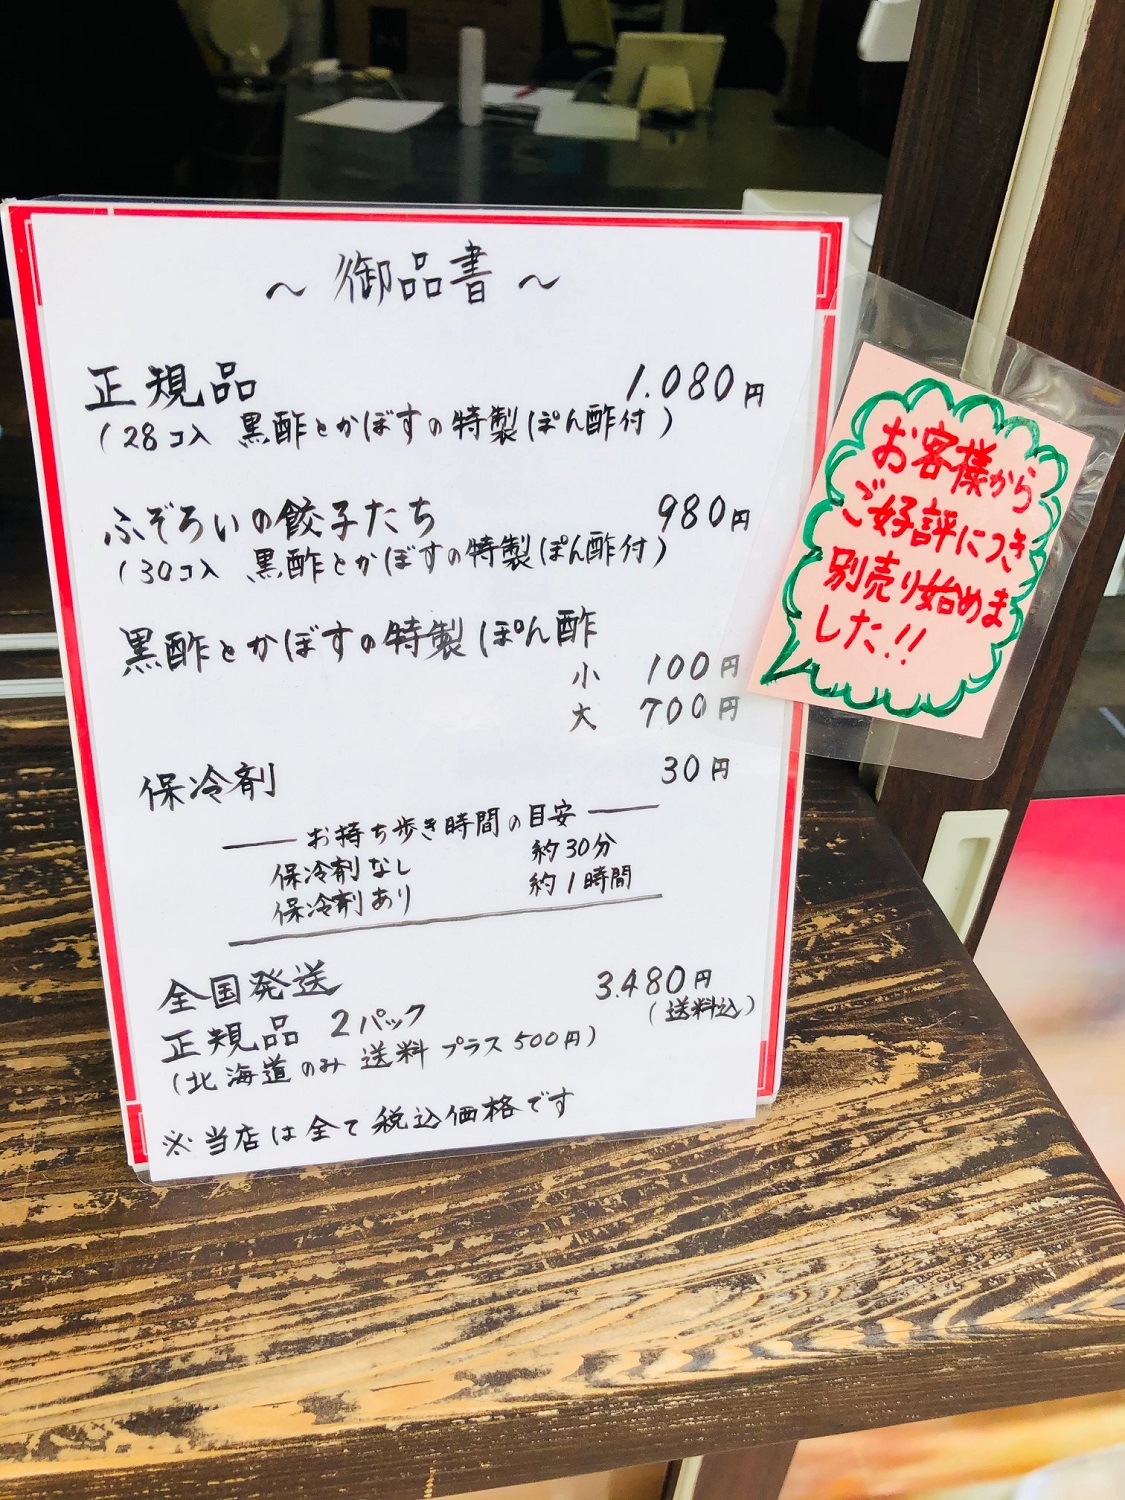 ～ 御品書 ～
正規品 1.080円
(28コ入 黒酢とかぼすの特製ぽん酢付)
ふぞろいの餃子たち 980円
(30コ入 黒酢とかぼすの特製ぽん酢付)
黒酢とかぼすの特製ぽん酢
小 100円
大 700円
保冷剤 30円
お持ち歩き時間の目安
保冷剤なし 約30分
保冷剤あり 約1時間
全国発送 3.480円
正規品 2パック (送料込)
(北海道のみ 送料 プラス500円)
※当店は全て税込価格です
お客様から
ご好評につき
別売り始めま
した!!